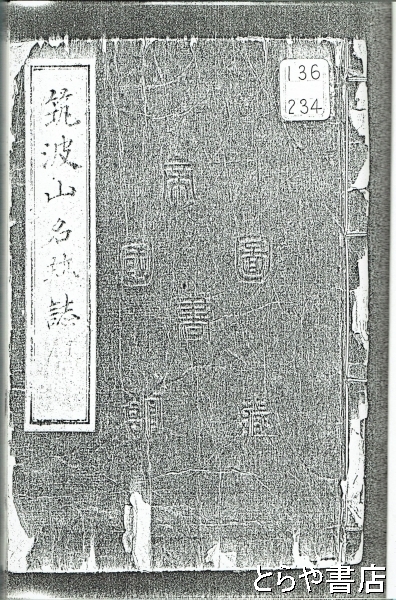 筑波山名跡誌
136
234
帝
図
国
書
館
蔵
とらや書店